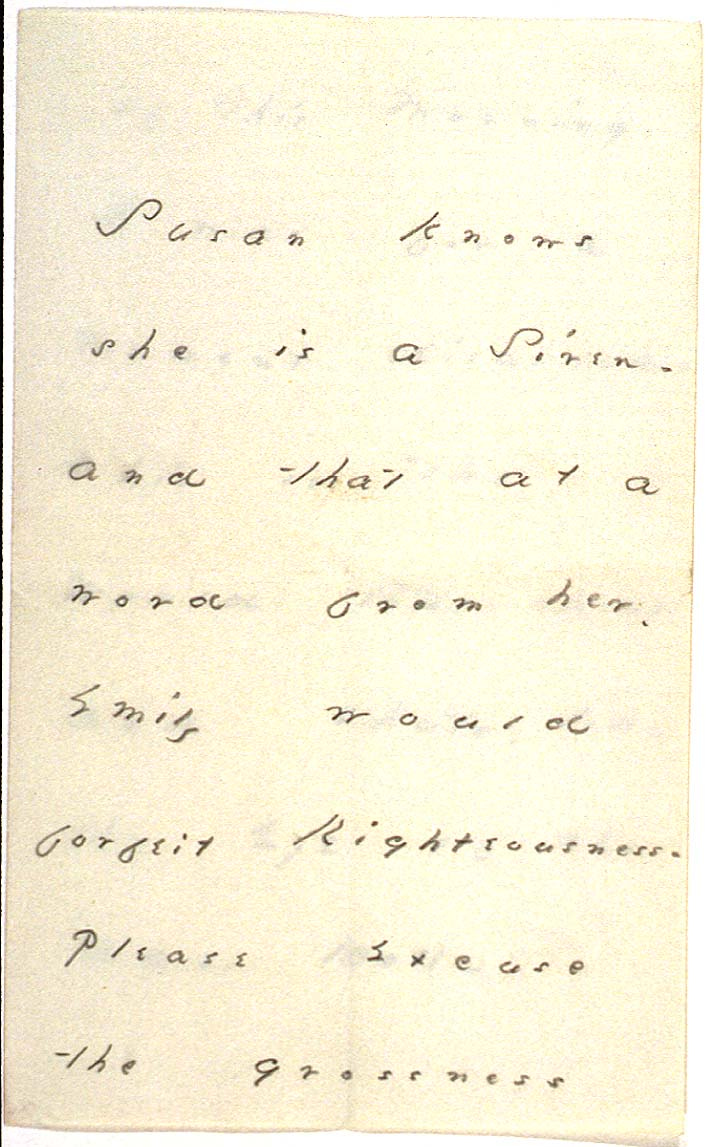 Susan knows
she is a Siren -
and that at a
word from her,
Emily would
forfeit Righteousness -
Please excuse
the grossness